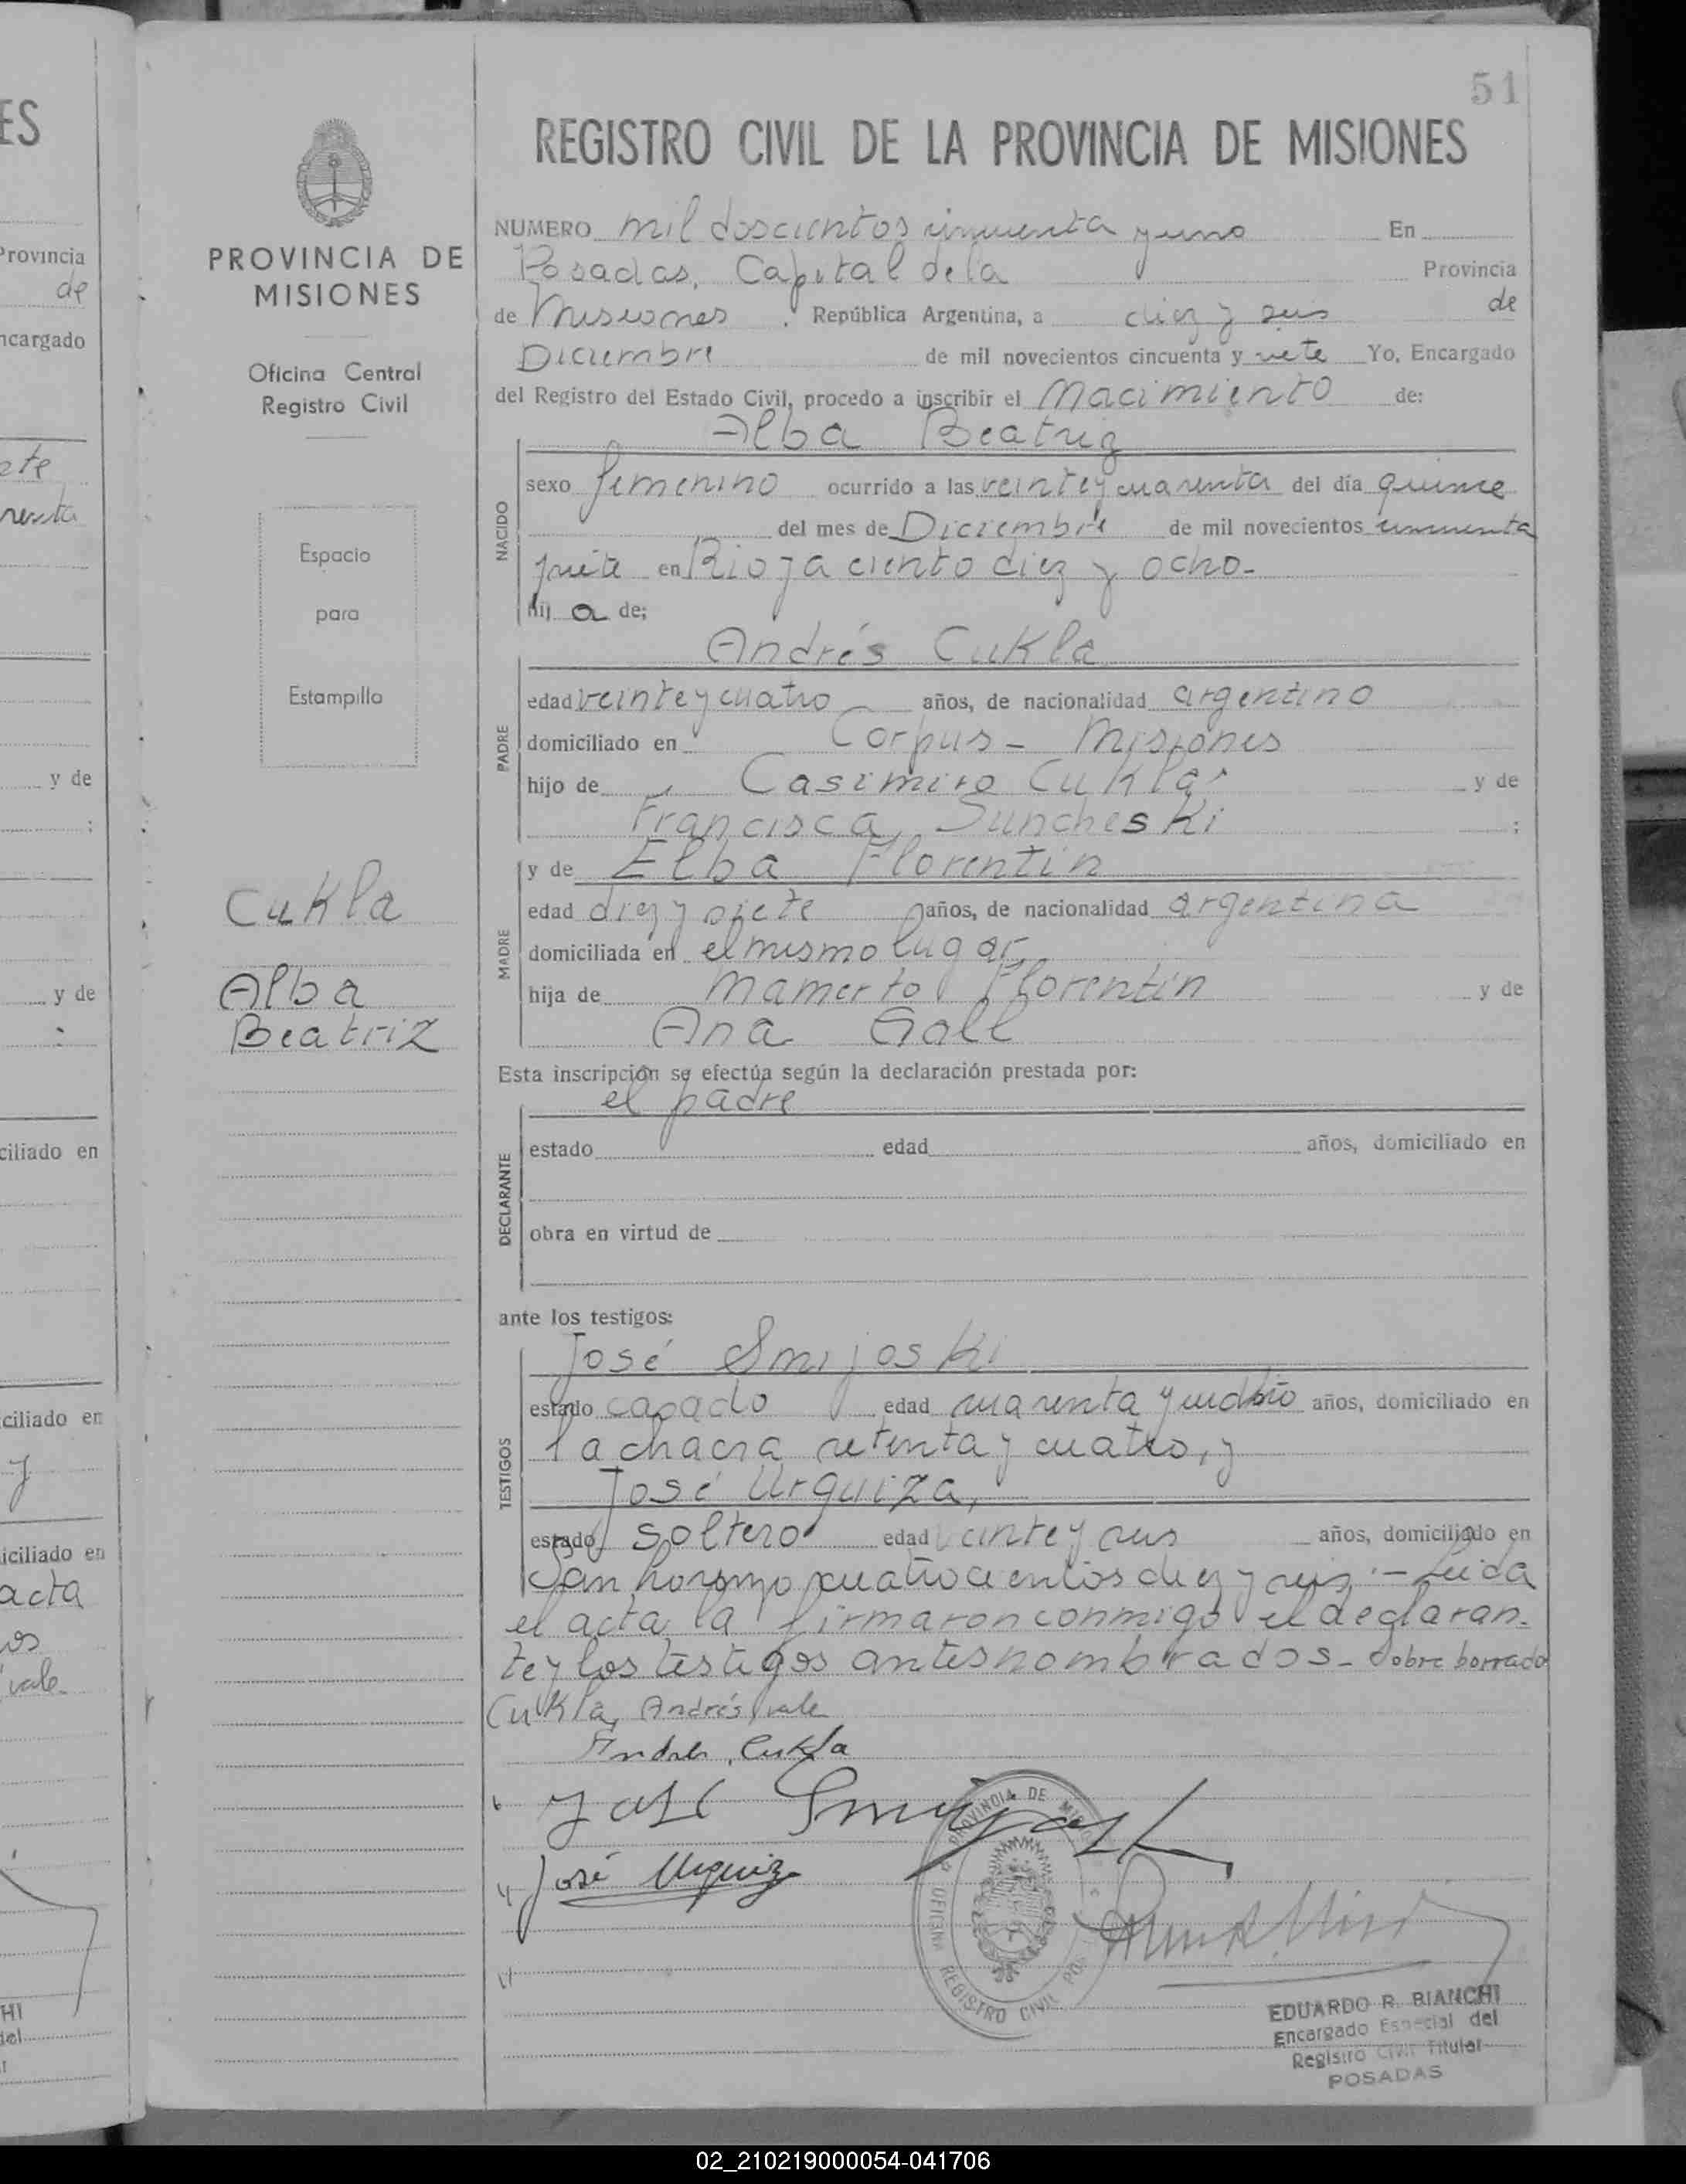 51
REGISTRO CIVIL DE LA PROVINCIA DE MISIONES
PROVINCIA DE
MISIONES
Oficina Central
Registro Civil
Espacio
para
Estampilla
Cukla
Alba
Beatriz
NUMERO mil doscientos cincuenta y uno En
Posadas, Capital de la Provincia
de Misiones, República Argentina, a diez y seis de
Diciembre de mil novecientos cincuenta y siete Yo, Encargado
del Registro del Estado Civil, procedo a inscribir el Nacimiento de:
Alba Beatriz
NACIDO
sexo femenino ocurrido a las veinte y cuarenta del día quince
del mes de Diciembre de mil novecientos cincuenta
siete en Rioja ciento diez y ocho-
hij a de;
Andrés Cukla
PADRE
edad veinte y cuatro años, de nacionalidad argentino
domiciliado en Corpus - Misiones
hijo de Casimiro Cukla y de
Francisca Suncheski ;
y de Elba Florentin
MADRE
edad diez y siete años, de nacionalidad argentina
domiciliada en el mismo lugar,
hija de Mamerto Florentin y de
Ana Gall
Esta inscripción se efectúa según la declaración prestada por:
el padre
DECLARANTE
estado edad años, domiciliado en
obra en virtud de
ante los testigos:
José Smijoski
TESTIGOS
estado casado edad cuarenta y años, domiciliado en
la chacra setenta y cuatro, y
José Urquiza,
estado soltero edad veinte y seis años, domiciliado en
San Lorenzo cuatrocientos diez y seis.- Leída
el acta la firmaron conmigo el declaran-
te y los testigos antes nombrados- Sobre borrado
Cukla, Andrés vale
Andrés Cukla
José Smijoski
José Urquiza
PROVINCIA DE MISIONES
OFICINA REGISTRO CIVIL POS
EDUARDO R. BIANCHI
Encargado Especial del
Registro Civil Titular
POSADAS
ES
Provincia
de
ncargado
y de
;
y de
ciliado en
ciliado en
y
iciliado en
acta
os
vale
HI
del
02_210219000054-041706